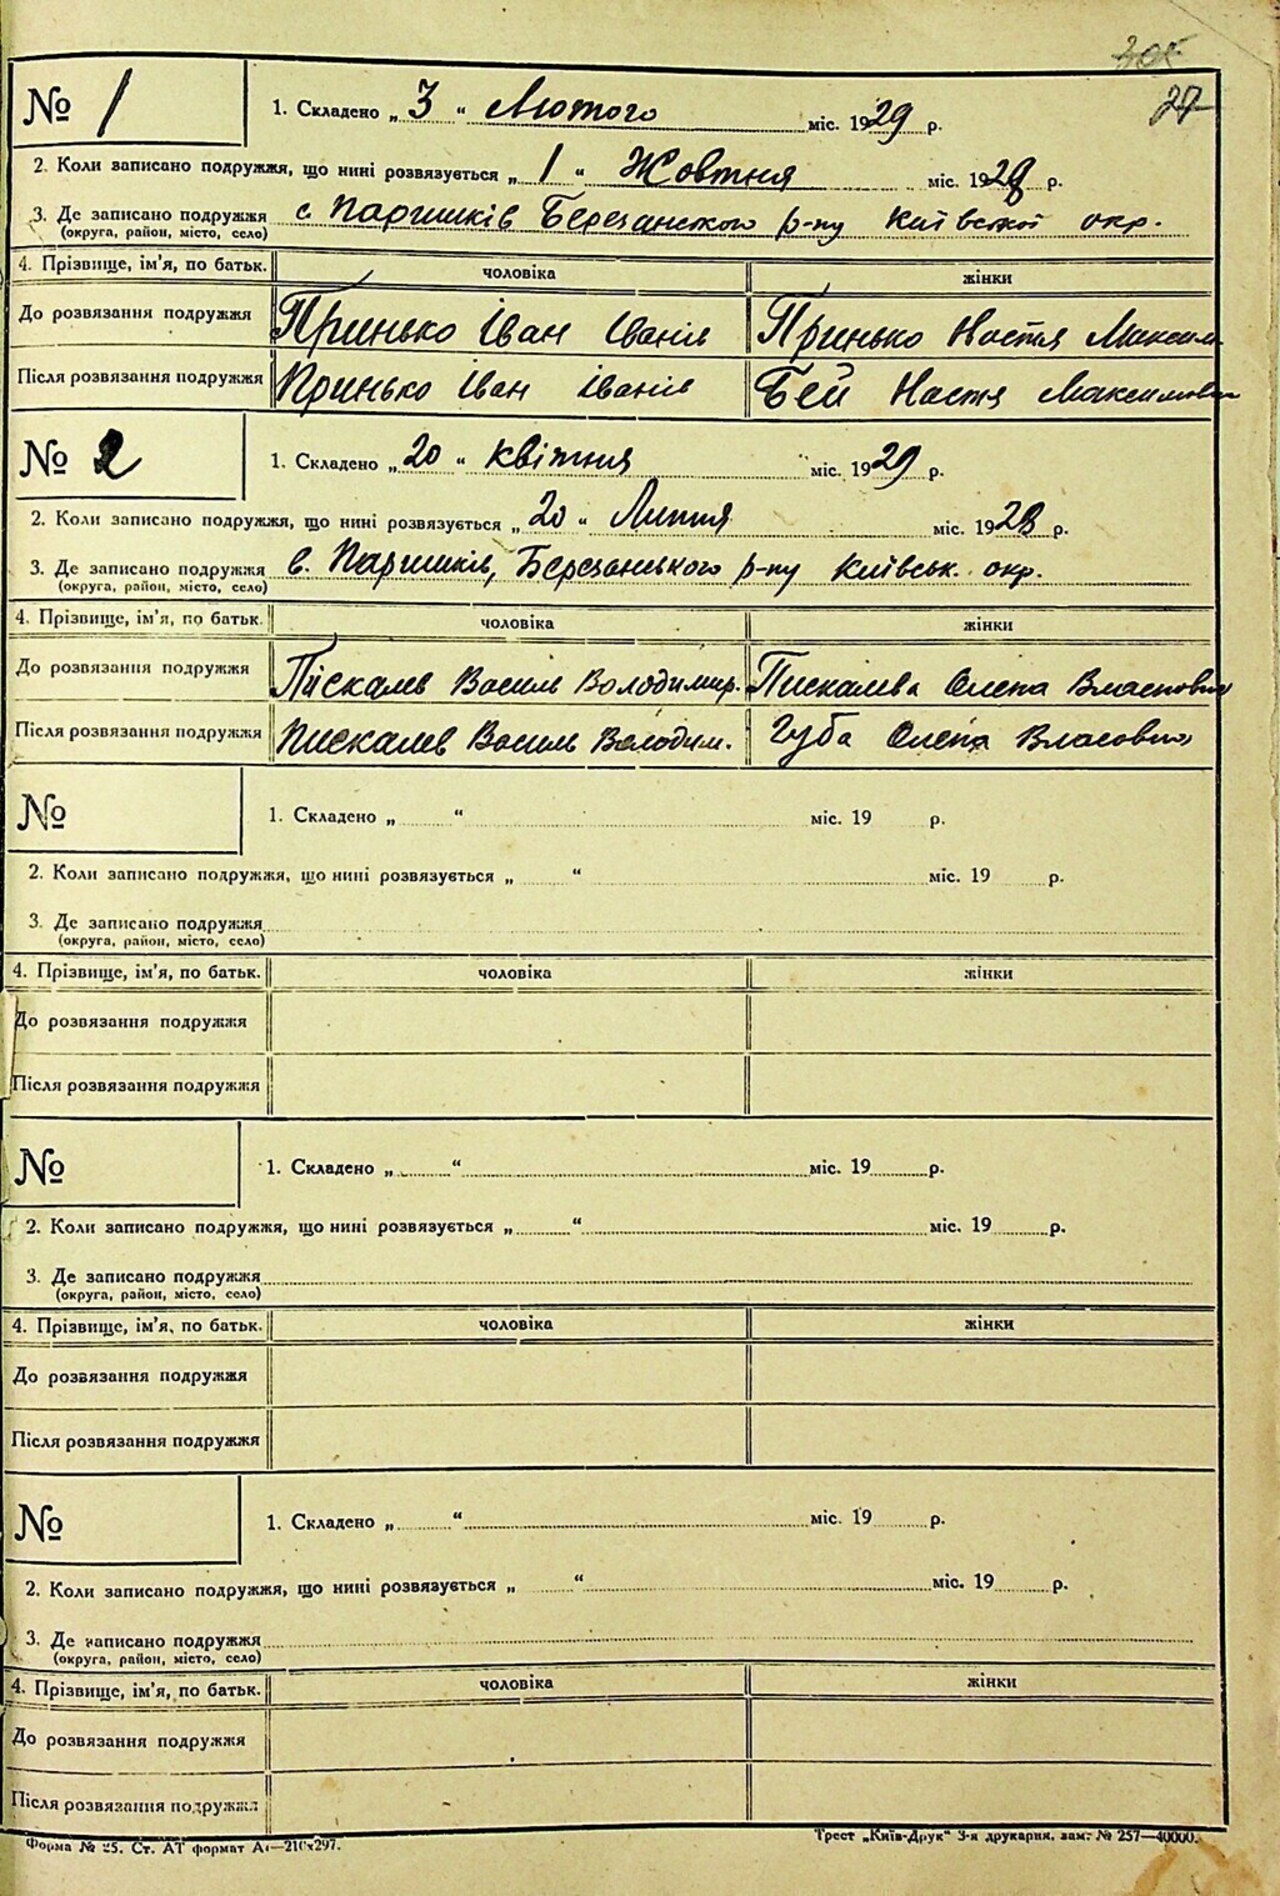 305
27
№ 1
1. Складено „ 3 “ Лютого міс. 1929 р.
2. Коли записано подружжя, що нині розвязується „ 1 “ Жовтня міс. 1928 р.
3. Де записано подружжя с. Паришків Березанського р-ну Київської окр.
(округа, район, місто, село)
4. Прізвище, ім'я, по батьк. чоловіка жінки
До розвязання подружжя Принько Іван Іванів Принько Настя Максим
Після розвязання подружжя Принько Іван Іванів Бей Настя Максимовна
№ 2
1. Складено „ 20 “ квітня міс. 1929 р.
2. Коли записано подружжя, що нині розвязується „ 20 “ Липня міс. 1928 р.
3. Де записано подружжя в. Паришків, Березанського р-ну Київськ. окр.
(округа, район, місто, село)
4. Прізвище, ім'я, по батьк. чоловіка жінки
До розвязання подружжя Піскалев Василь Володимир. Пискалева Олена
Після розвязання подружжя Пискалев Василь Володим. Губа Олена Власовна
№
1. Складено „ “ міс. 19 р.
2. Коли записано подружжя, що нині розвязується „ “ міс. 19 р.
3. Де записано подружжя
(округа, район, місто, село)
4. Прізвище, ім'я, по батьк. чоловіка жінки
До розвязання подружжя
Після розвязання подружжя
№
1. Складено „ “ міс. 19 р.
2. Коли записано подружжя, що нині розвязується „ “ міс. 19 р.
3. Де записано подружжя
(округа, район, місто, село)
4. Прізвище, ім'я, по батьк. чоловіка жінки
До розвязання подружжя
Після розвязання подружжя
№
1. Складено „ “ міс. 19 р.
2. Коли записано подружжя, що нині розвязується „ “ міс. 19 р.
3. Де записано подружжя
(округа, район, місто, село)
4. Прізвище, ім'я, по батьк. чоловіка жінки
До розвязання подружжя
Після розвязання подружжя
Форма № 25. Ст. АТ формат А4—210х297. Трест „Київ-Друк“ 3-я друкарня, зам. № 257—40000.